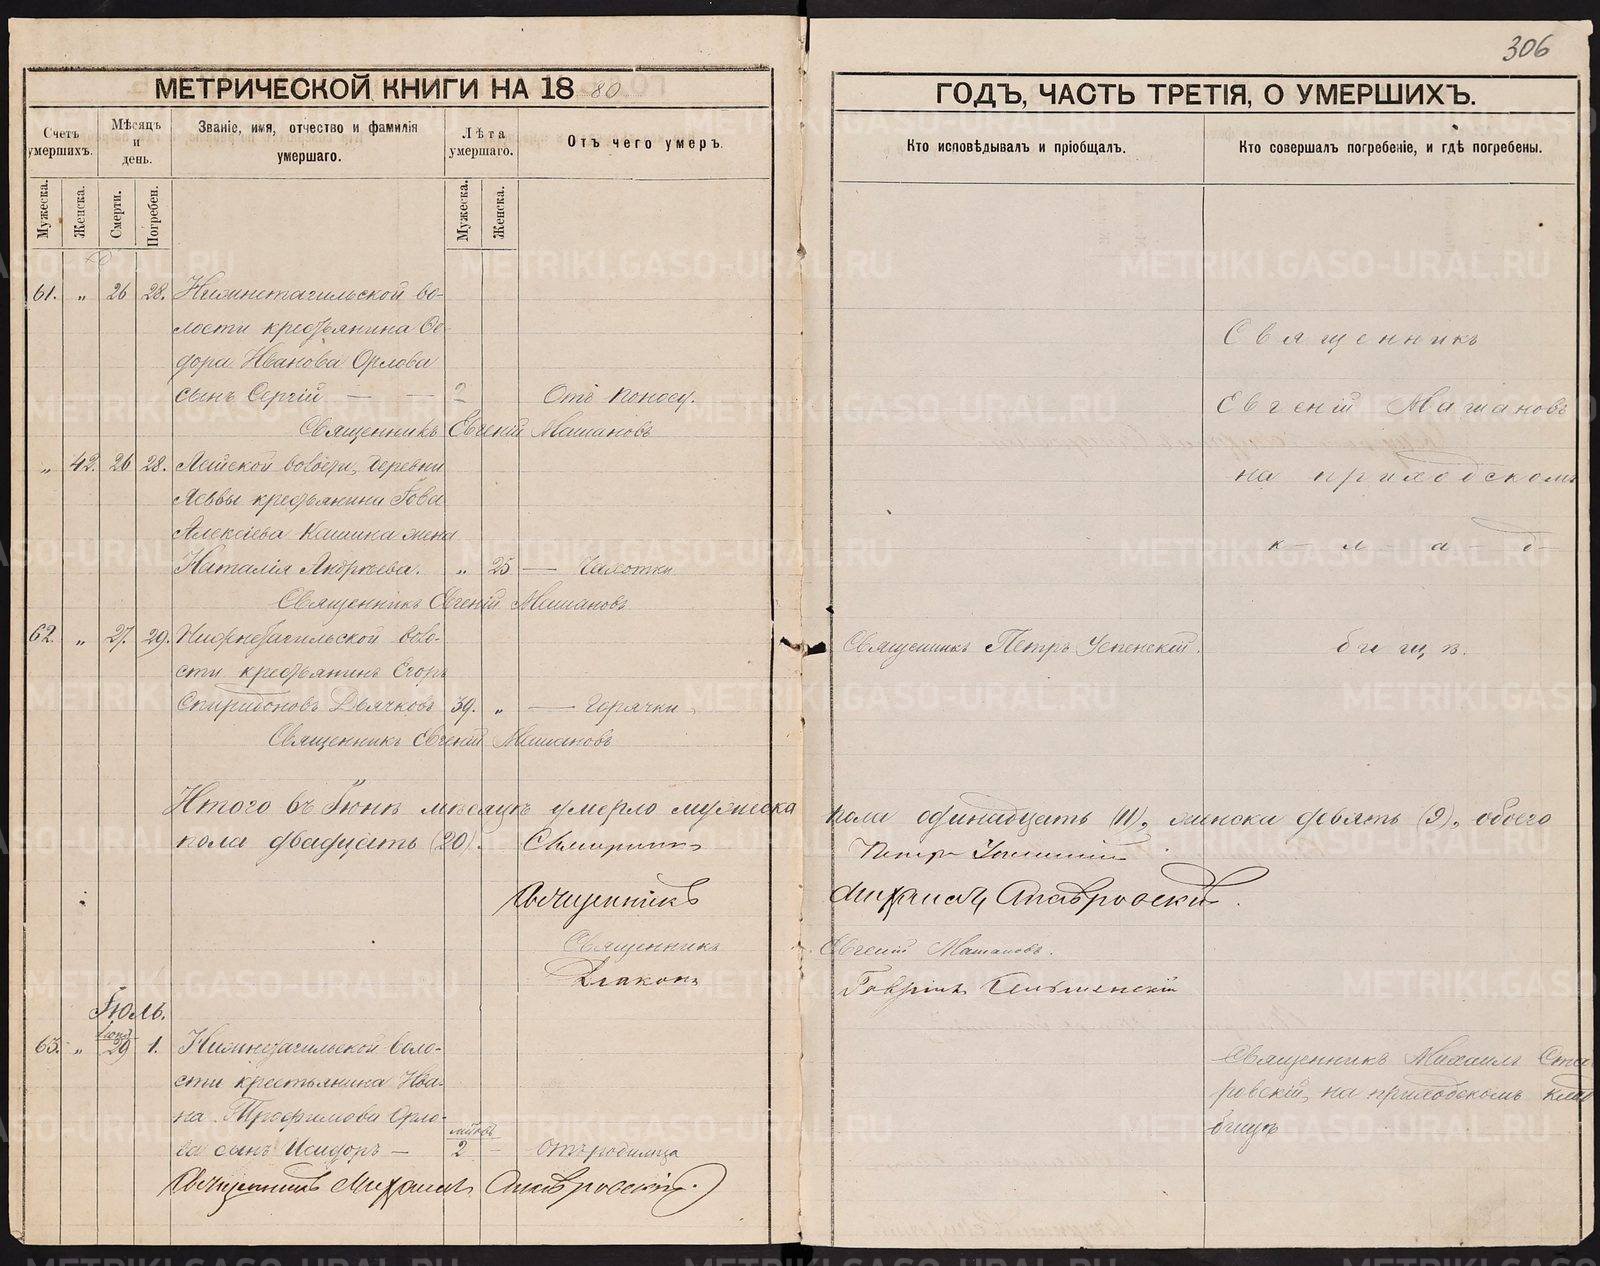 306
МЕТРИЧЕСКОЙ КНИГИ НА 18 80
ГОДЪ, ЧАСТЬ ТРЕТІЯ, О УМЕРШИХЪ.
Счетъ умершихъ.
Мѣсяцъ и день.
Званіе, имя, отчество и фамилія умершаго.
Лѣта умершаго.
Отъ чего умеръ.
Кто исповѣдывалъ и пріобщалъ.
Кто совершалъ погребеніе, и гдѣ погребены.
Мужеска.
Женска.
Смерти.
Погребен.
Мужеска.
Женска.
61. " 26 28. Нижнетагильской во-
лости крестьянина Ѳе-
дора Иванова Орлова
сынъ Сергій — — 2 Отъ поносу.
Священникъ Евгеній Машановъ
Священникъ
Евгеній Машановъ
на приходскомъ
к – л – а – д –
бищѣ.
" 42. 26 28. Лайской волости, деревни
крестьянина
Алексѣева жена
Наталія Андреева. " 25 — Чахотки
Священникъ Евгеній Машановъ
62. " 27. 29. Нижнетагильской воло-
сти крестьянинъ Егоръ
Спиридоновъ Дьячковъ 39. " — Горячки
Священникъ Петръ Успенскій.
Священникъ Евгеній Машановъ
Итого въ Іюнѣ мѣсяцѣ умерло мужеска
пола одинадцать (11), женска девять (9), обоего
пола двадцать (20). Священникъ
Петръ Успенскій
Священникъ
Михаилъ Ставровскій.
Священникъ
Евгеній Машановъ.
Діаконъ
Гавріилъ
Іюль.
Іюня
63. " 29 1. Нижнетагильской воло-
сти крестьянина Ива-
на Трофимова Орло-
ва сынъ Исидоръ — 2 — Отъ родимца
Священникъ Михаилъ Ставровскій.
Священникъ Михаилъ Став
ровскій, на приходскомъ клад
бищѣ
METRIKI.GASO-URAL.RU